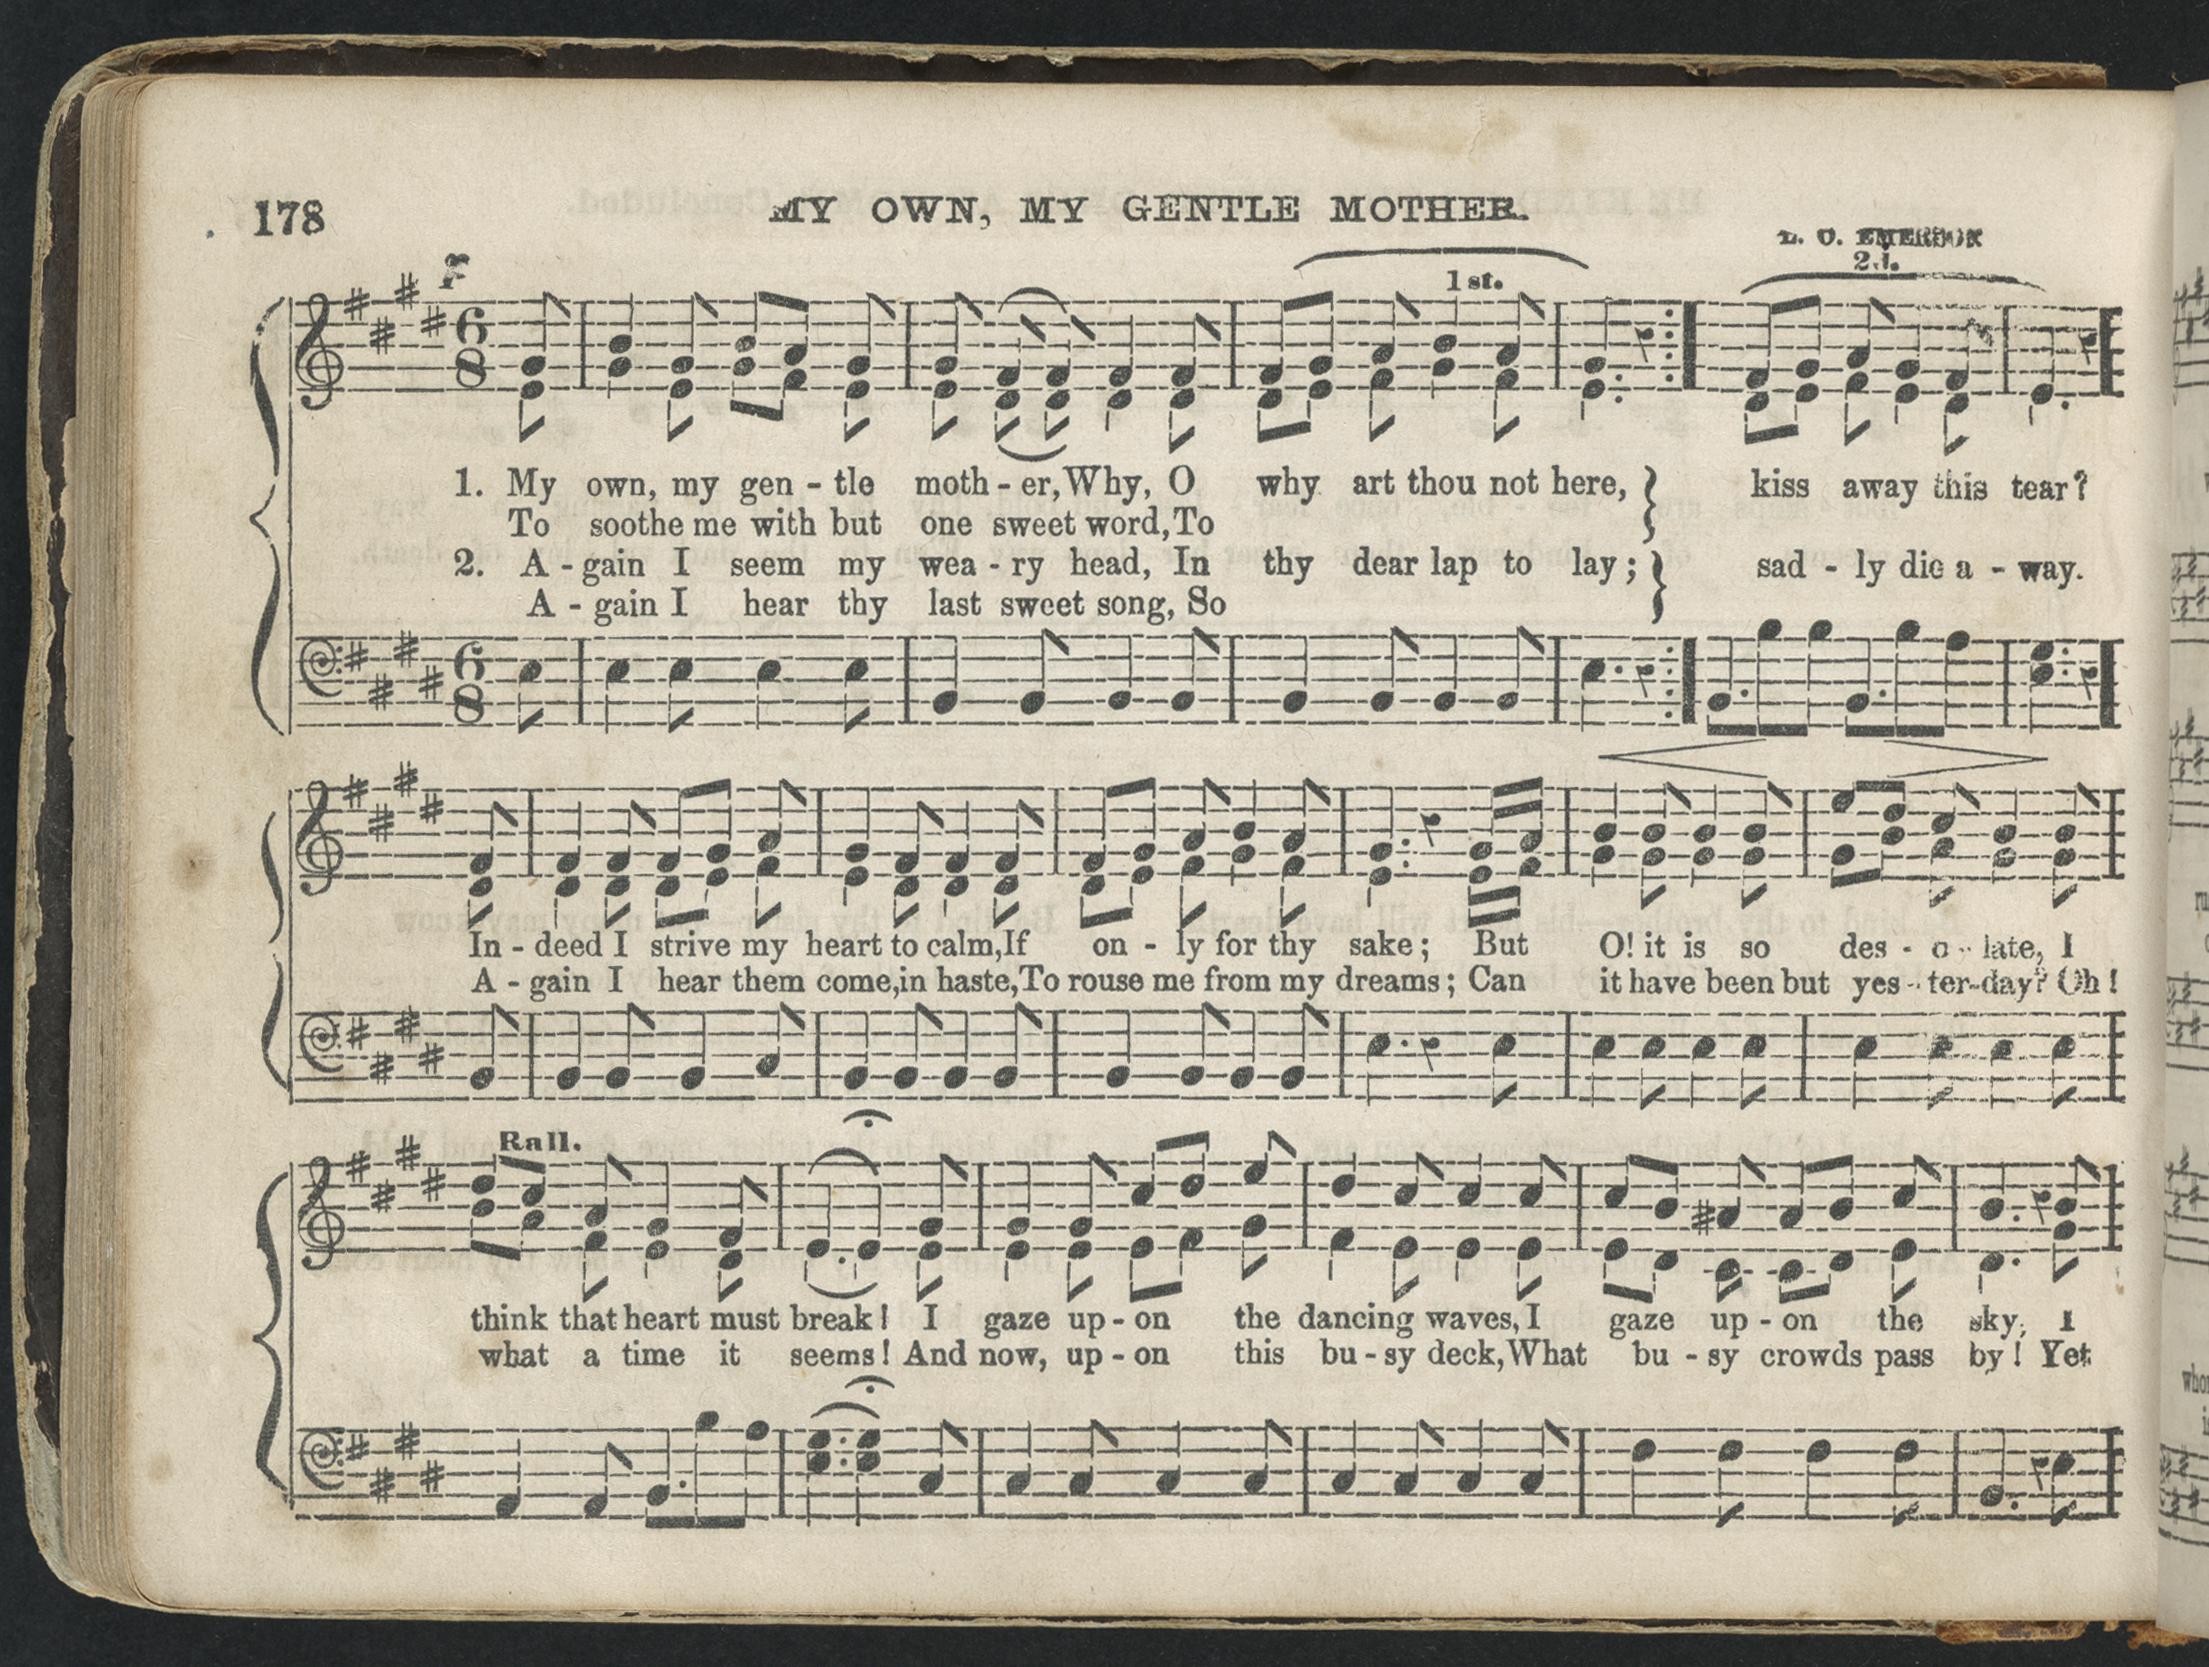 178
MY OWN, MY GENTLE MOTHER.
L. O. EMERSON
1st.
2d.
1. My own, my gen - tle moth - er, Why, O why art thou not here, kiss away this tear?
To soothe me with but one sweet word, To
2. A - gain I seem my wea - ry head, In thy dear lap to lay; sad - ly die a - way.
A - gain I hear thy last sweet song, So
In - deed I strive my heart to calm, If on - ly for thy sake; But O! it is so des - o - late, I
A - gain I hear them come, in haste, To rouse me from my dreams; Can it have been but yes - ter-day? Oh!
Rall.
think that heart must break! I gaze up - on the dancing waves, I gaze up - on the sky, I
what a time it seems! And now, up - on this bu - sy deck, What bu - sy crowds pass by! Yet